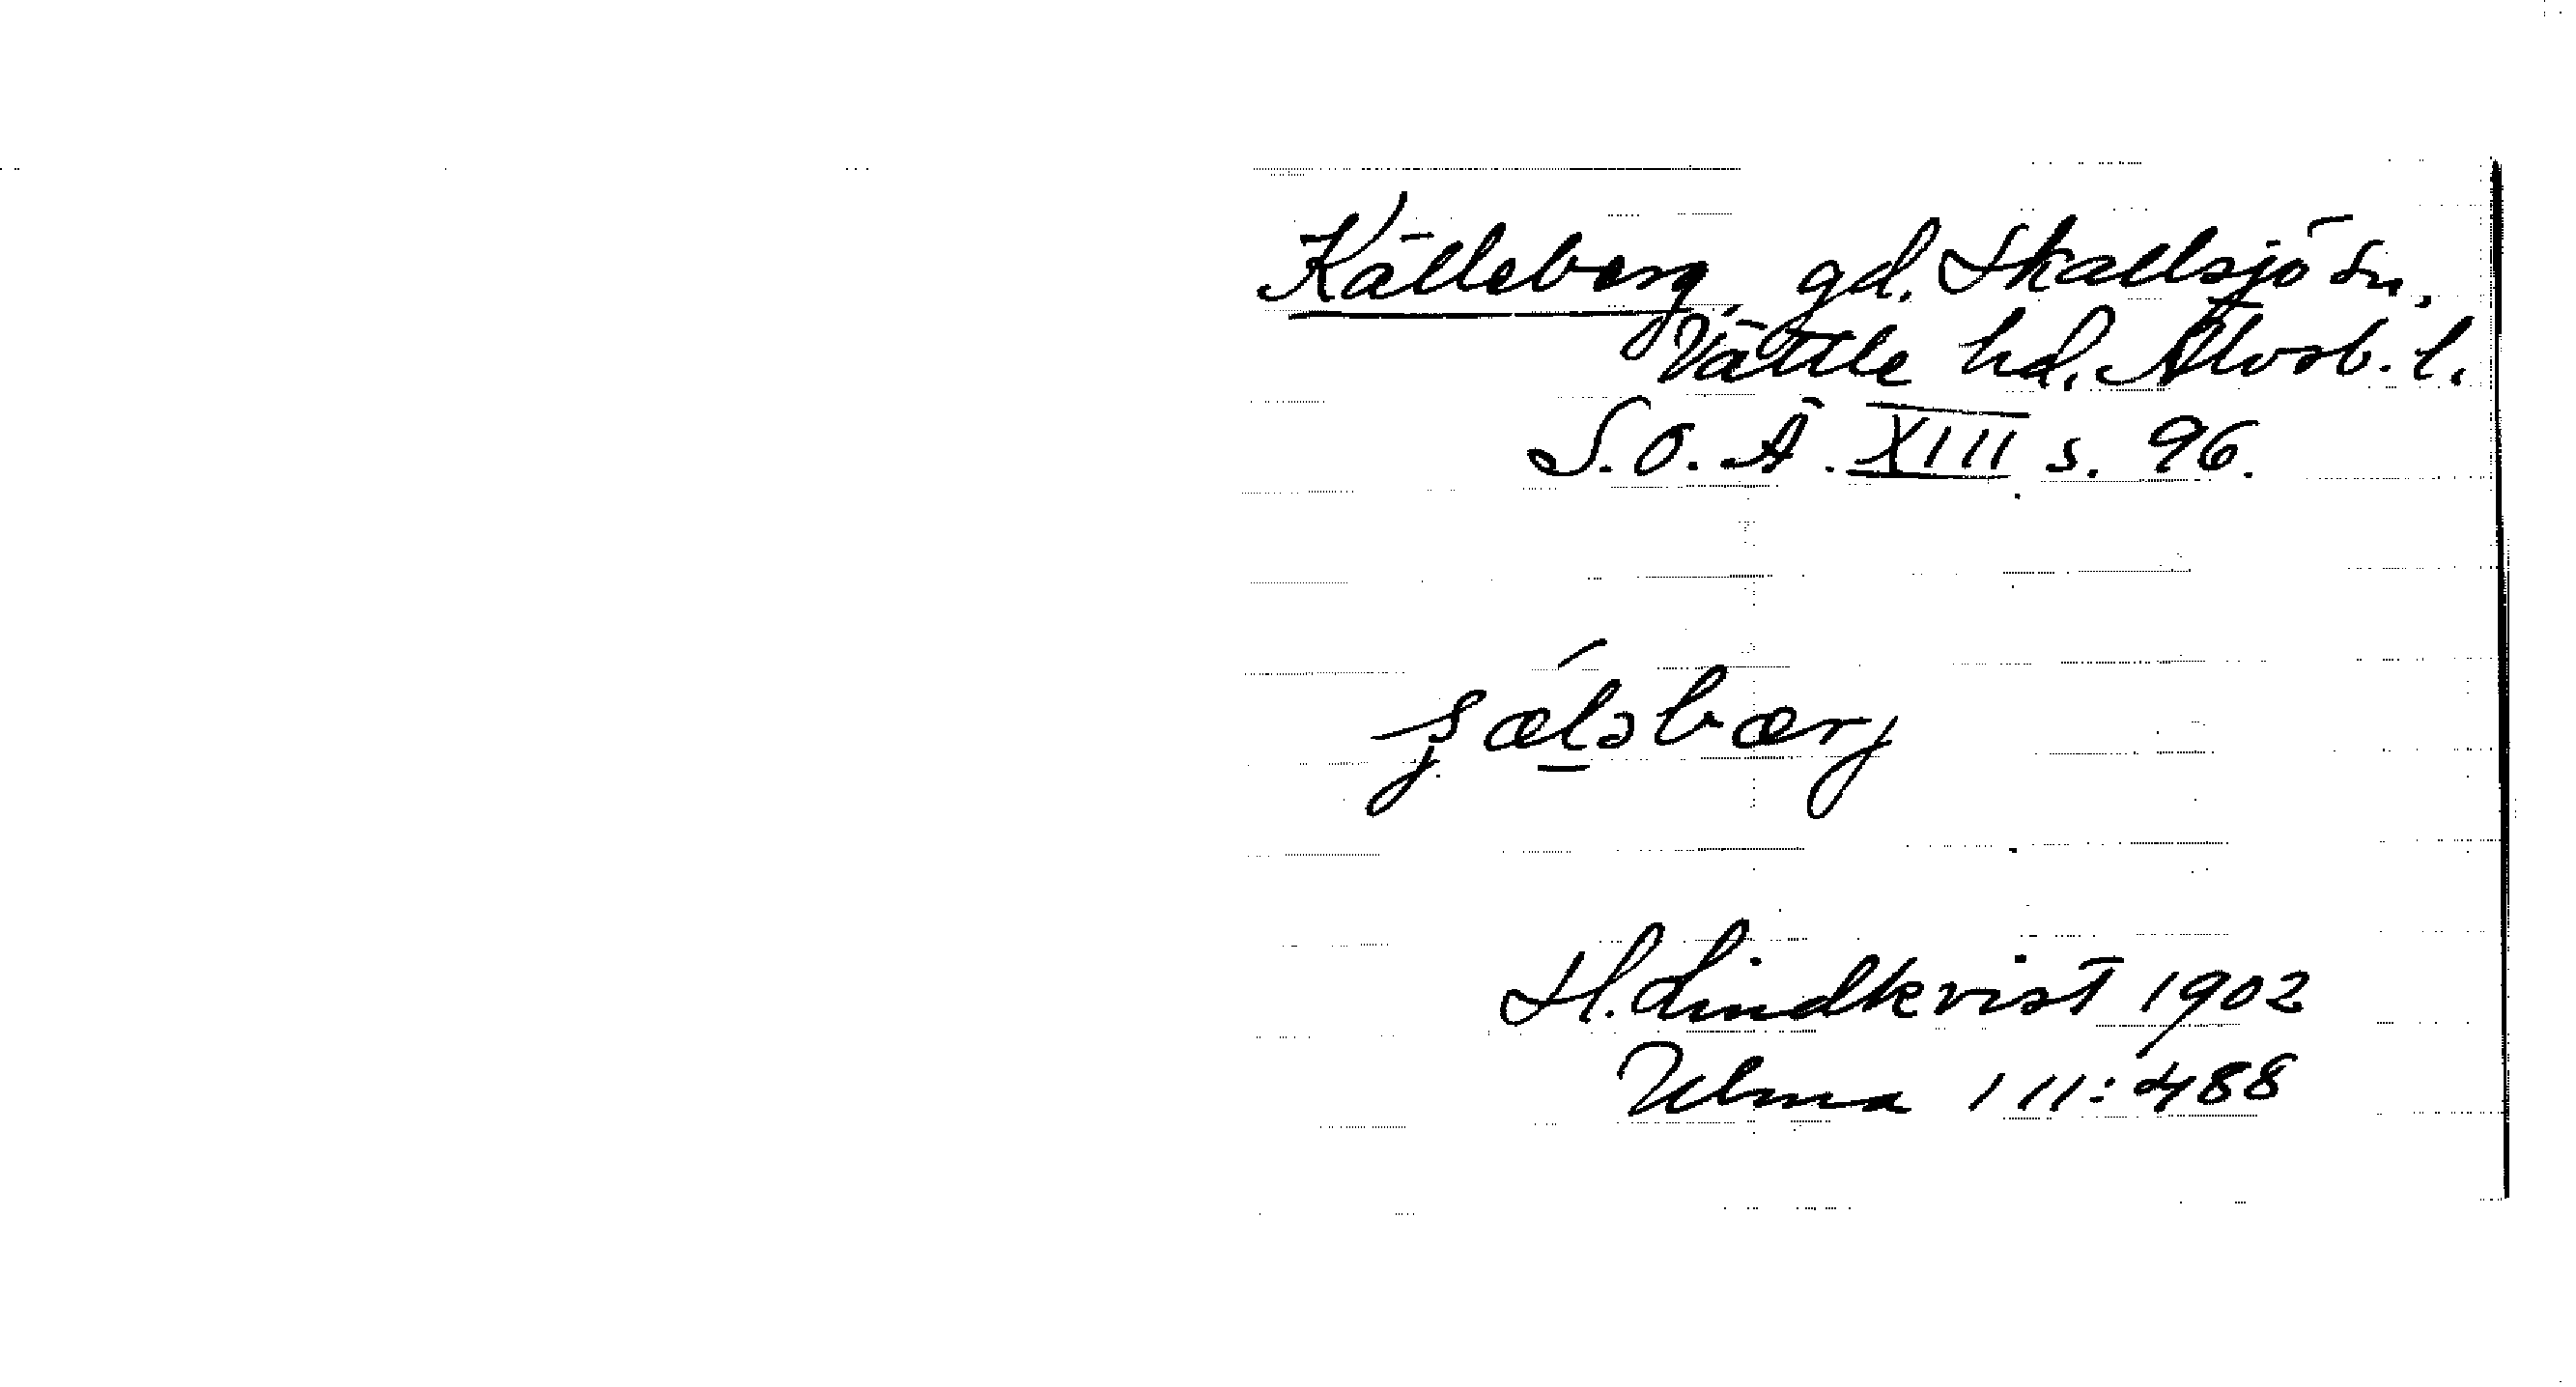 Källeberg, gd. Skallsjö sn.
Vättle hd. Älvsb. l.
S.O.Ä. XIII s. 96.
H. Lindkvist 1902
Ulma 111:488